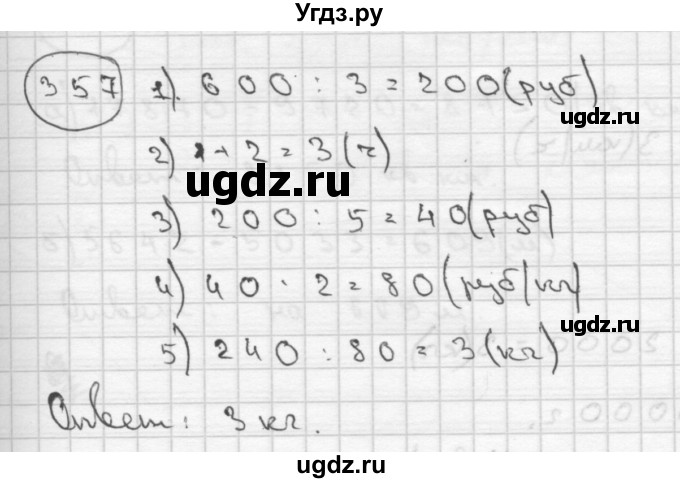 Угдз.ру
357 1) 600 : 3 = 200 (руб)
2) 1 + 2 = 3 (ч)
ugdz.ru
ugdz.ru
3) 200 : 5 = 40 (руб)
4) 40 · 2 = 80 (руб/кг)
ugdz.ru
5) 240 : 80 = 3 (кг)
Ответ: 3 кг.
ugdz.ru